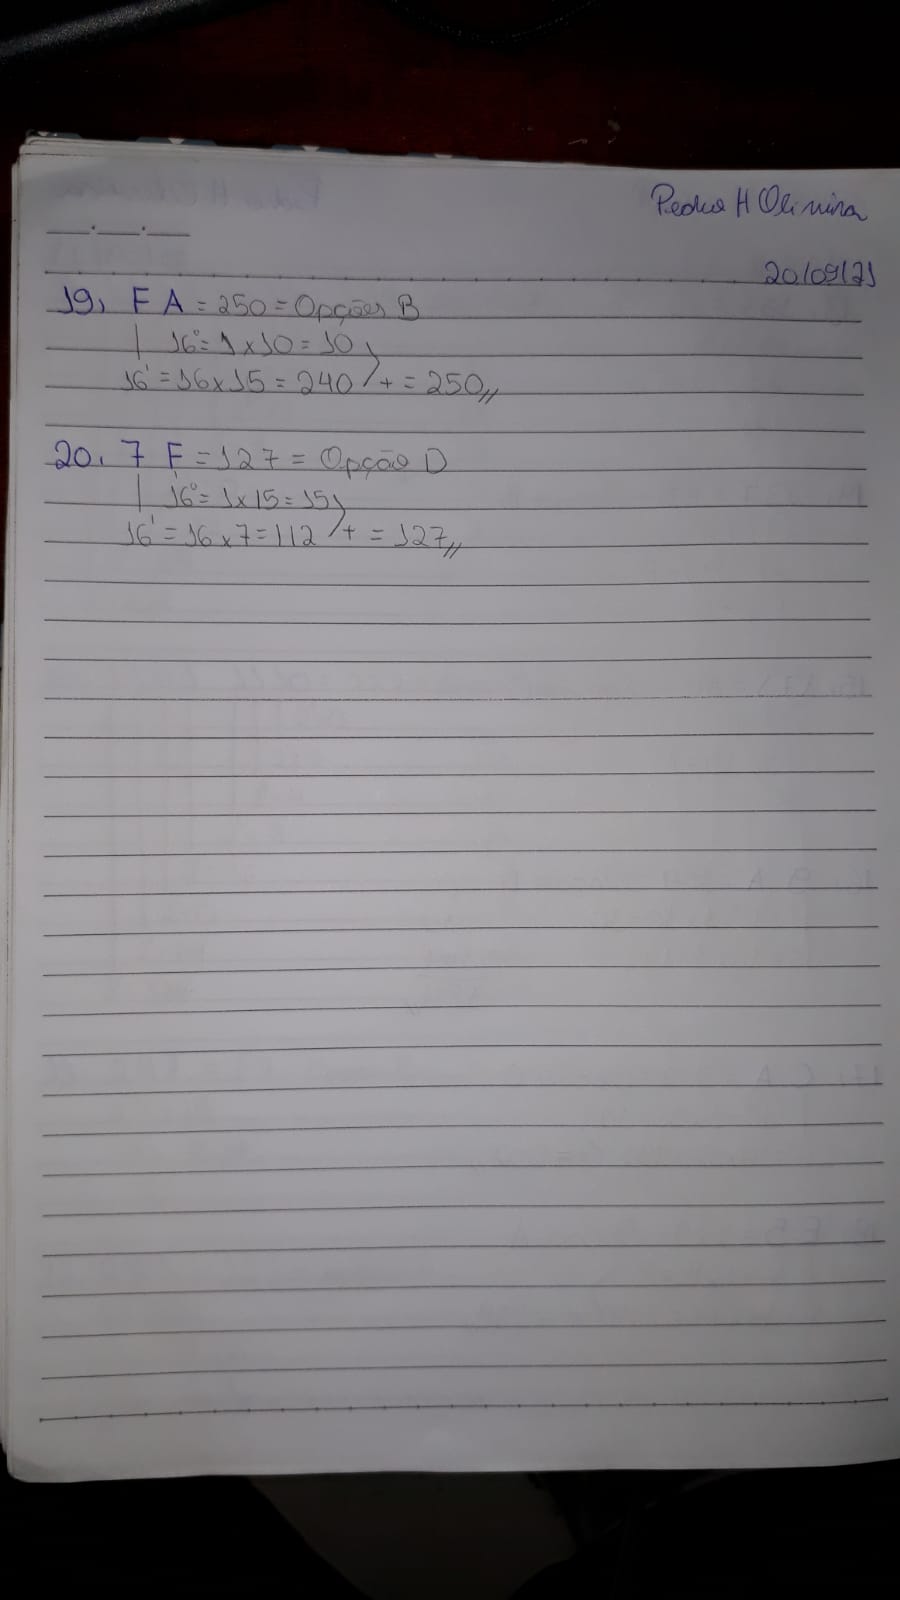 Pedro H Oliveira
20/09/21
19, F A = 250 = Opções B
16° = 1 x 10 = 10
16' = 16 x 15 = 240 + = 250,,
20. 7 F = 127 = Opção D
16° = 1 x 15 = 15
16' = 16 x 7 = 112 + = 127,,